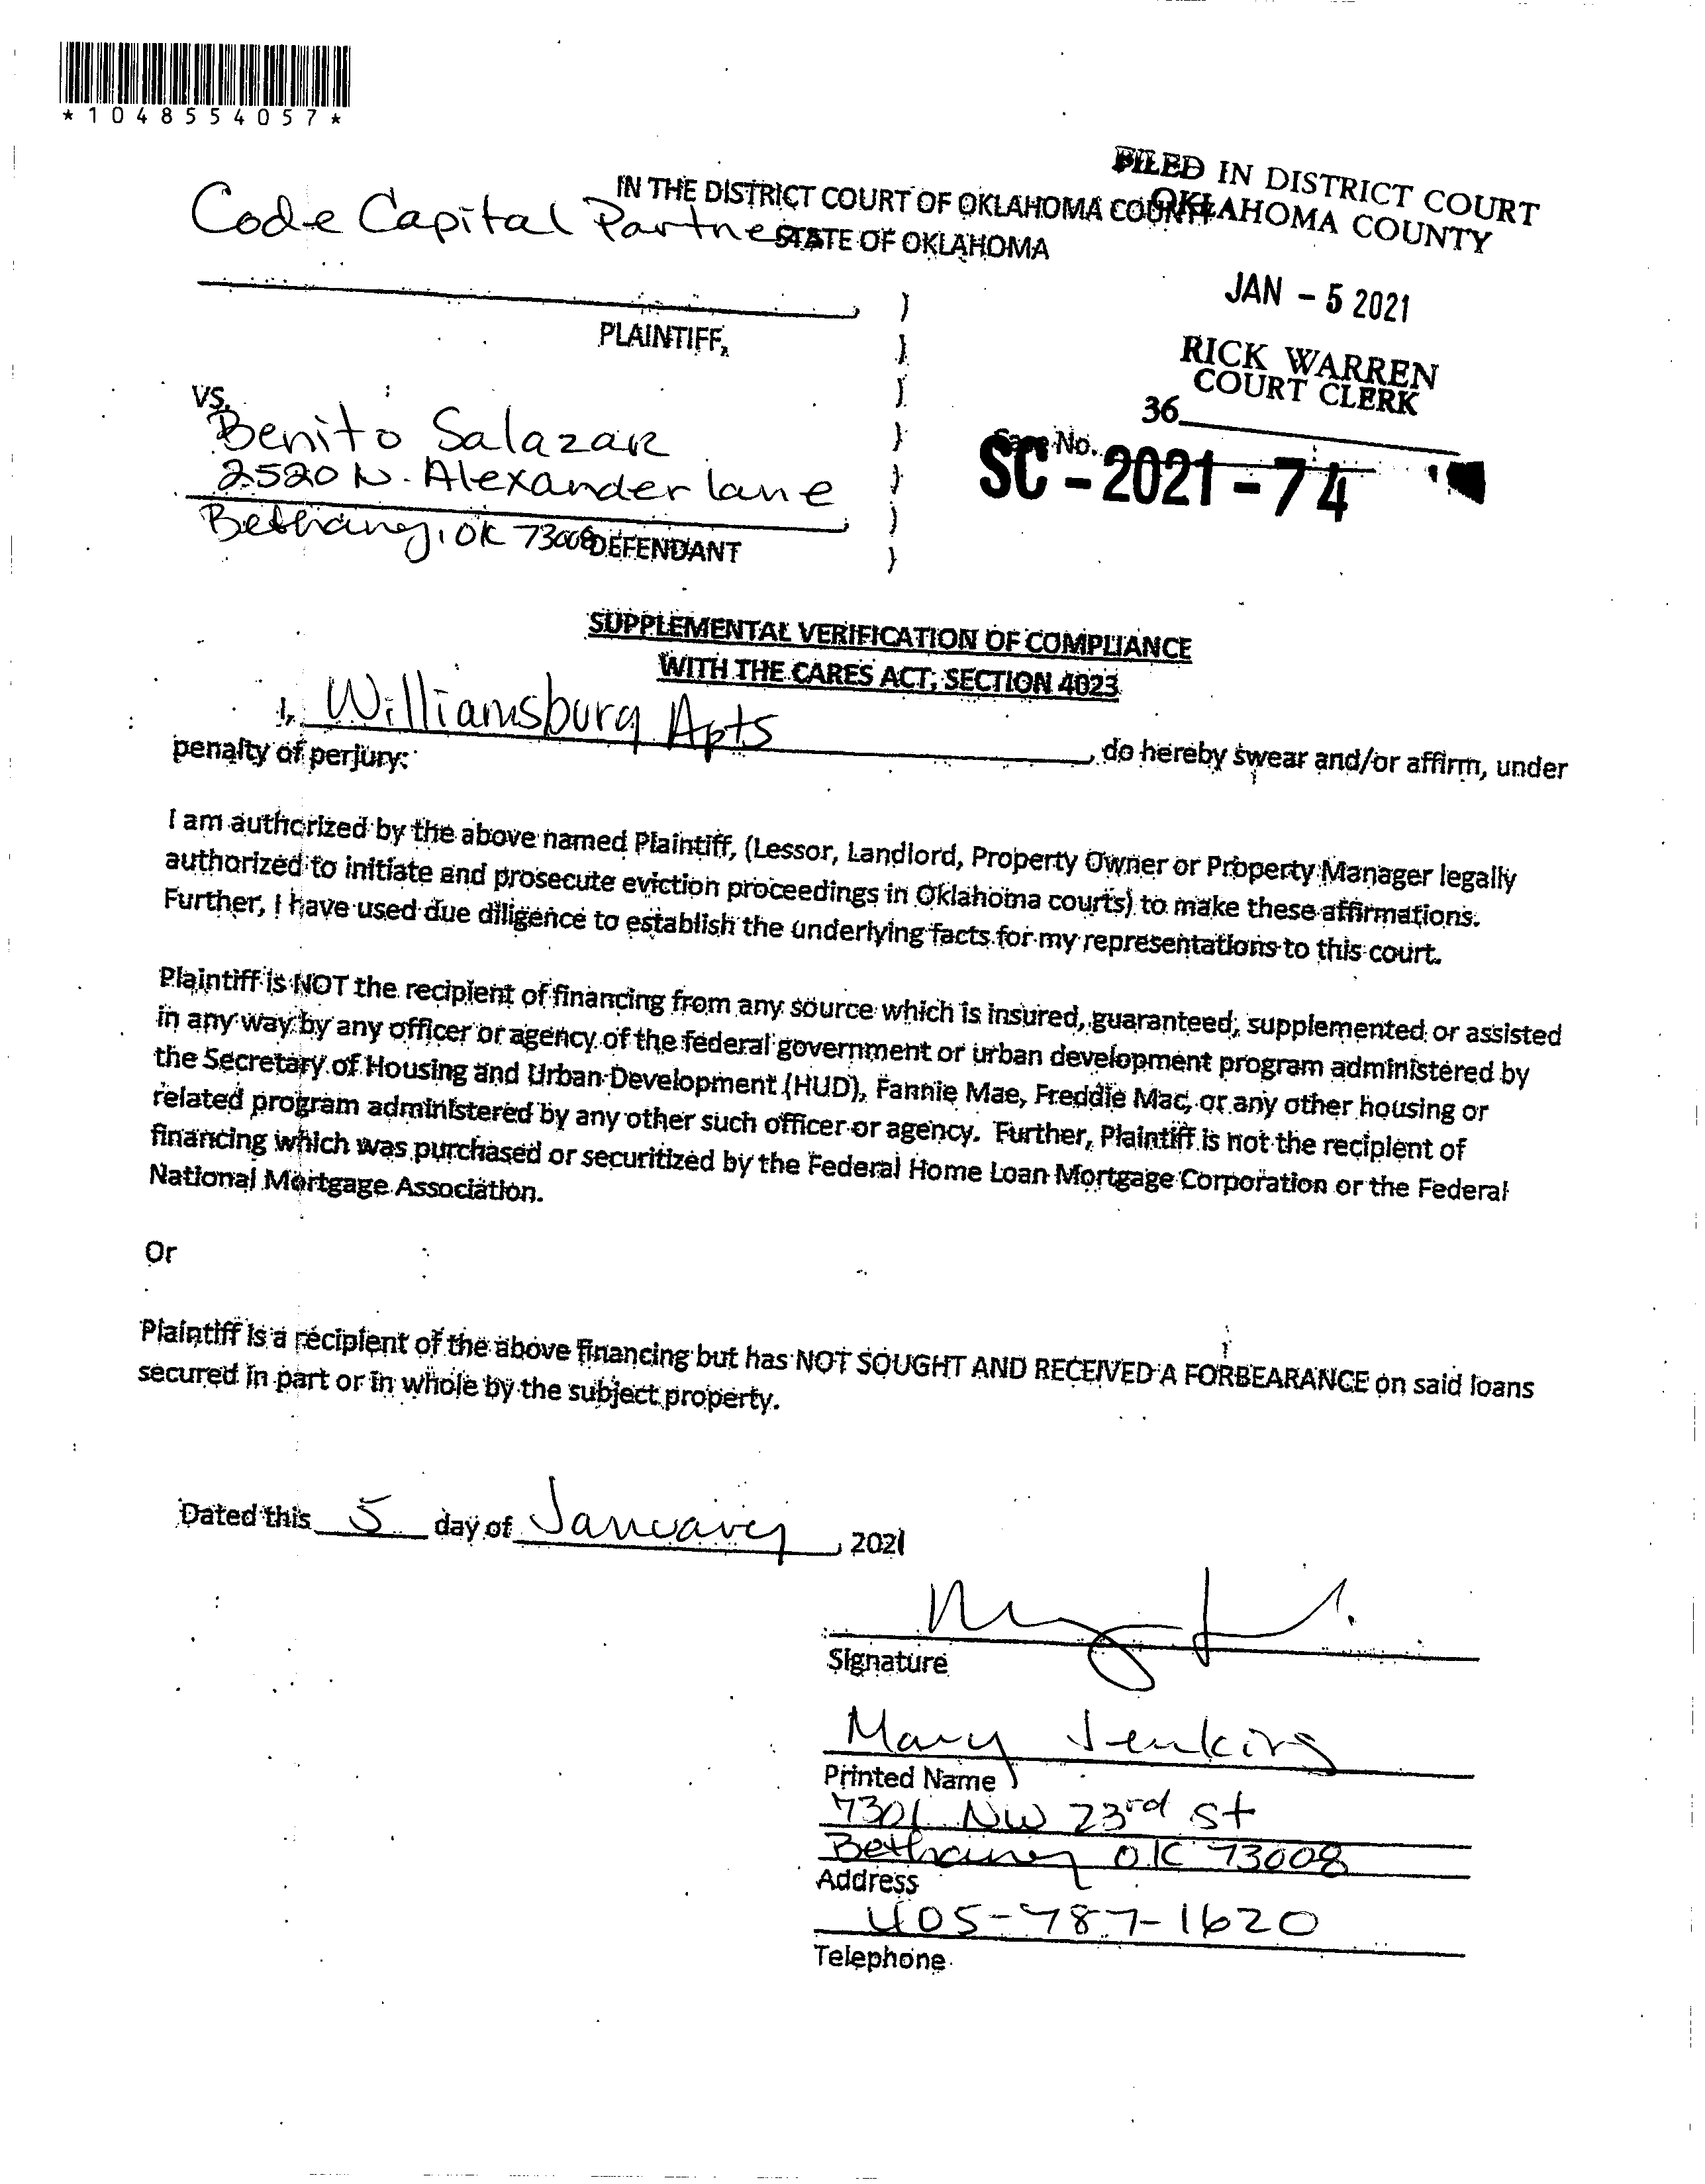 *1048554057*
FILED IN DISTRICT COURT
OKLAHOMA COUNTY
JAN - 5 2021
RICK WARREN
COURT CLERK
36
IN THE DISTRICT COURT OF OKLAHOMA COUNTY
STATE OF OKLAHOMA
Code Capital Partners
PLAINTIFF,
VS.
Benito Salazar
2520 N. Alexander lane
Bethany, OK 73008
DEFENDANT
Case No.
SC - 2021 - 74
SUPPLEMENTAL VERIFICATION OF COMPLIANCE
WITH THE CARES ACT, SECTION 4023
I, Williamsburg Apts, do hereby swear and/or affirm, under
penalty of perjury:
I am authorized by the above named Plaintiff, (Lessor, Landlord, Property Owner or Property Manager legally
authorized to initiate and prosecute eviction proceedings in Oklahoma courts) to make these affirmations.
Further, I have used due diligence to establish the underlying facts for my representations to this court.
Plaintiff is NOT the recipient of financing from any source which is insured, guaranteed, supplemented or assisted
in any way by any officer or agency of the federal government or urban development program administered by
the Secretary of Housing and Urban Development (HUD), Fannie Mae, Freddie Mac, or any other housing or
related program administered by any other such officer or agency. Further, Plaintiff is not the recipient of
financing which was purchased or securitized by the Federal Home Loan Mortgage Corporation or the Federal
National Mortgage Association.
Or
Plaintiff is a recipient of the above financing but has NOT SOUGHT AND RECEIVED A FORBEARANCE on said loans
secured in part or in whole by the subject property.
Dated this 5 day of January, 2021
Signature
Mary Jenkins
Printed Name
7301 NW 23rd St
Bethany OK 73008
Address
405-787-1620
Telephone